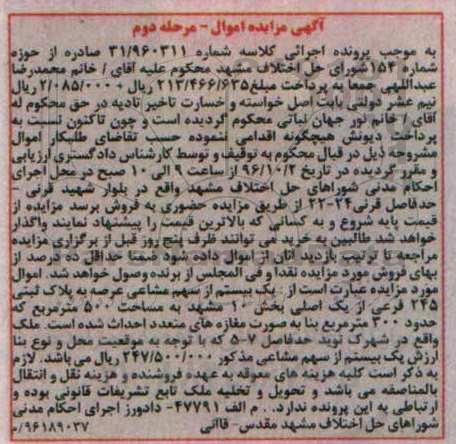 آگهی مزایده اموال - مرحله دوم
به موجب پرونده اجرائی کلاسه شماره ۳۱/۹۶۰۳۱۱ صادره از حوزه
شماره ۱۵۳شورای حل اختلاف مشهد محکوم علیه آقای / خانم محمدرضا
عبداللهی جمعا به پرداخت مبلغ۲۱۳/۴۶۶/۶۳۵ ریال + ۲/۰۸۵/۰۰۰ ریال
نیم عشر دولتی بابت اصل خواسته و خسارت تاخیر تادیه در حق محکوم له
آقای / خانم نور جهان نباتی محکوم گردیده است و چون تاکنون نسبت به
پرداخت دیونش هیچگونه اقدامی ننموده حسب تقاضای طلبکار اموال
مشروحه ذیل در قبال محکوم به توقیف و توسط کارشناس دادگستری ارزیابی
و مقرر گردیده در تاریخ ۹۶/۱۰/۲ از ساعت ۹ الی ۱۰ صبح در محل اجرای
احکام مدنی شوراهای حل اختلاف مشهد واقع در بلوار شهید قرنی -
حدفاصل قرنی۲۴-۲۲ از طریق مزایده حضوری به فروش برسد مزایده از
قیمت پایه شروع و به کسانی که بالاترین قیمت را پیشنهاد نمایند واگذار
خواهد شد طالبین به خرید می توانند ظرف پنج روز قبل از برگزاری مزایده
مراجعه تا ترتیب بازدید آنان از اموال داده شود ضمنا حداقل ده درصد از
بهای فروش مورد مزایده نقدا و فی المجلس از برنده وصول خواهد شد. اموال
مورد مزایده عبارت است از : یک بیستم از سهم مشاعی عرصه به پلاک ثبتی
۲۴۵ فرعی از یک اصلی بخش ۱۰ مشهد به مساحت ۵۰۰ مترمربع که
حدود ۳۰۰ مترمربع بنا به صورت مغازه های متعدد احداث شده است. ملک
واقع در شهرک نوید حدفاصل ۷-۵ که با توجه به موقعیت محل و نوع بنا
ارزش یک بیستم از سهم مشاعی مذکور ۲۴۷/۵۰۰/۰۰۰ ریال می باشد. لازم
به ذکر است کلیه هزینه های معوقه به عهده فروشنده و هزینه نقل و انتقال
بالمناصفه می باشد و تحویل و تخلیه ملک تابع تشریفات قانونی بوده و
ارتباطی به این پرونده ندارد. . م الف ۴۷۷۹۱- دادورز اجرای احکام مدنی
شوراهای حل اختلاف مشهد مقدس- قاانی
/۹۶۱۸۹۰۳۷